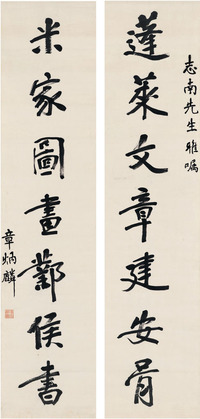 志南先生雅嘱
蓬莱文章建安骨
米家圖畫鄴侯書
章炳麟